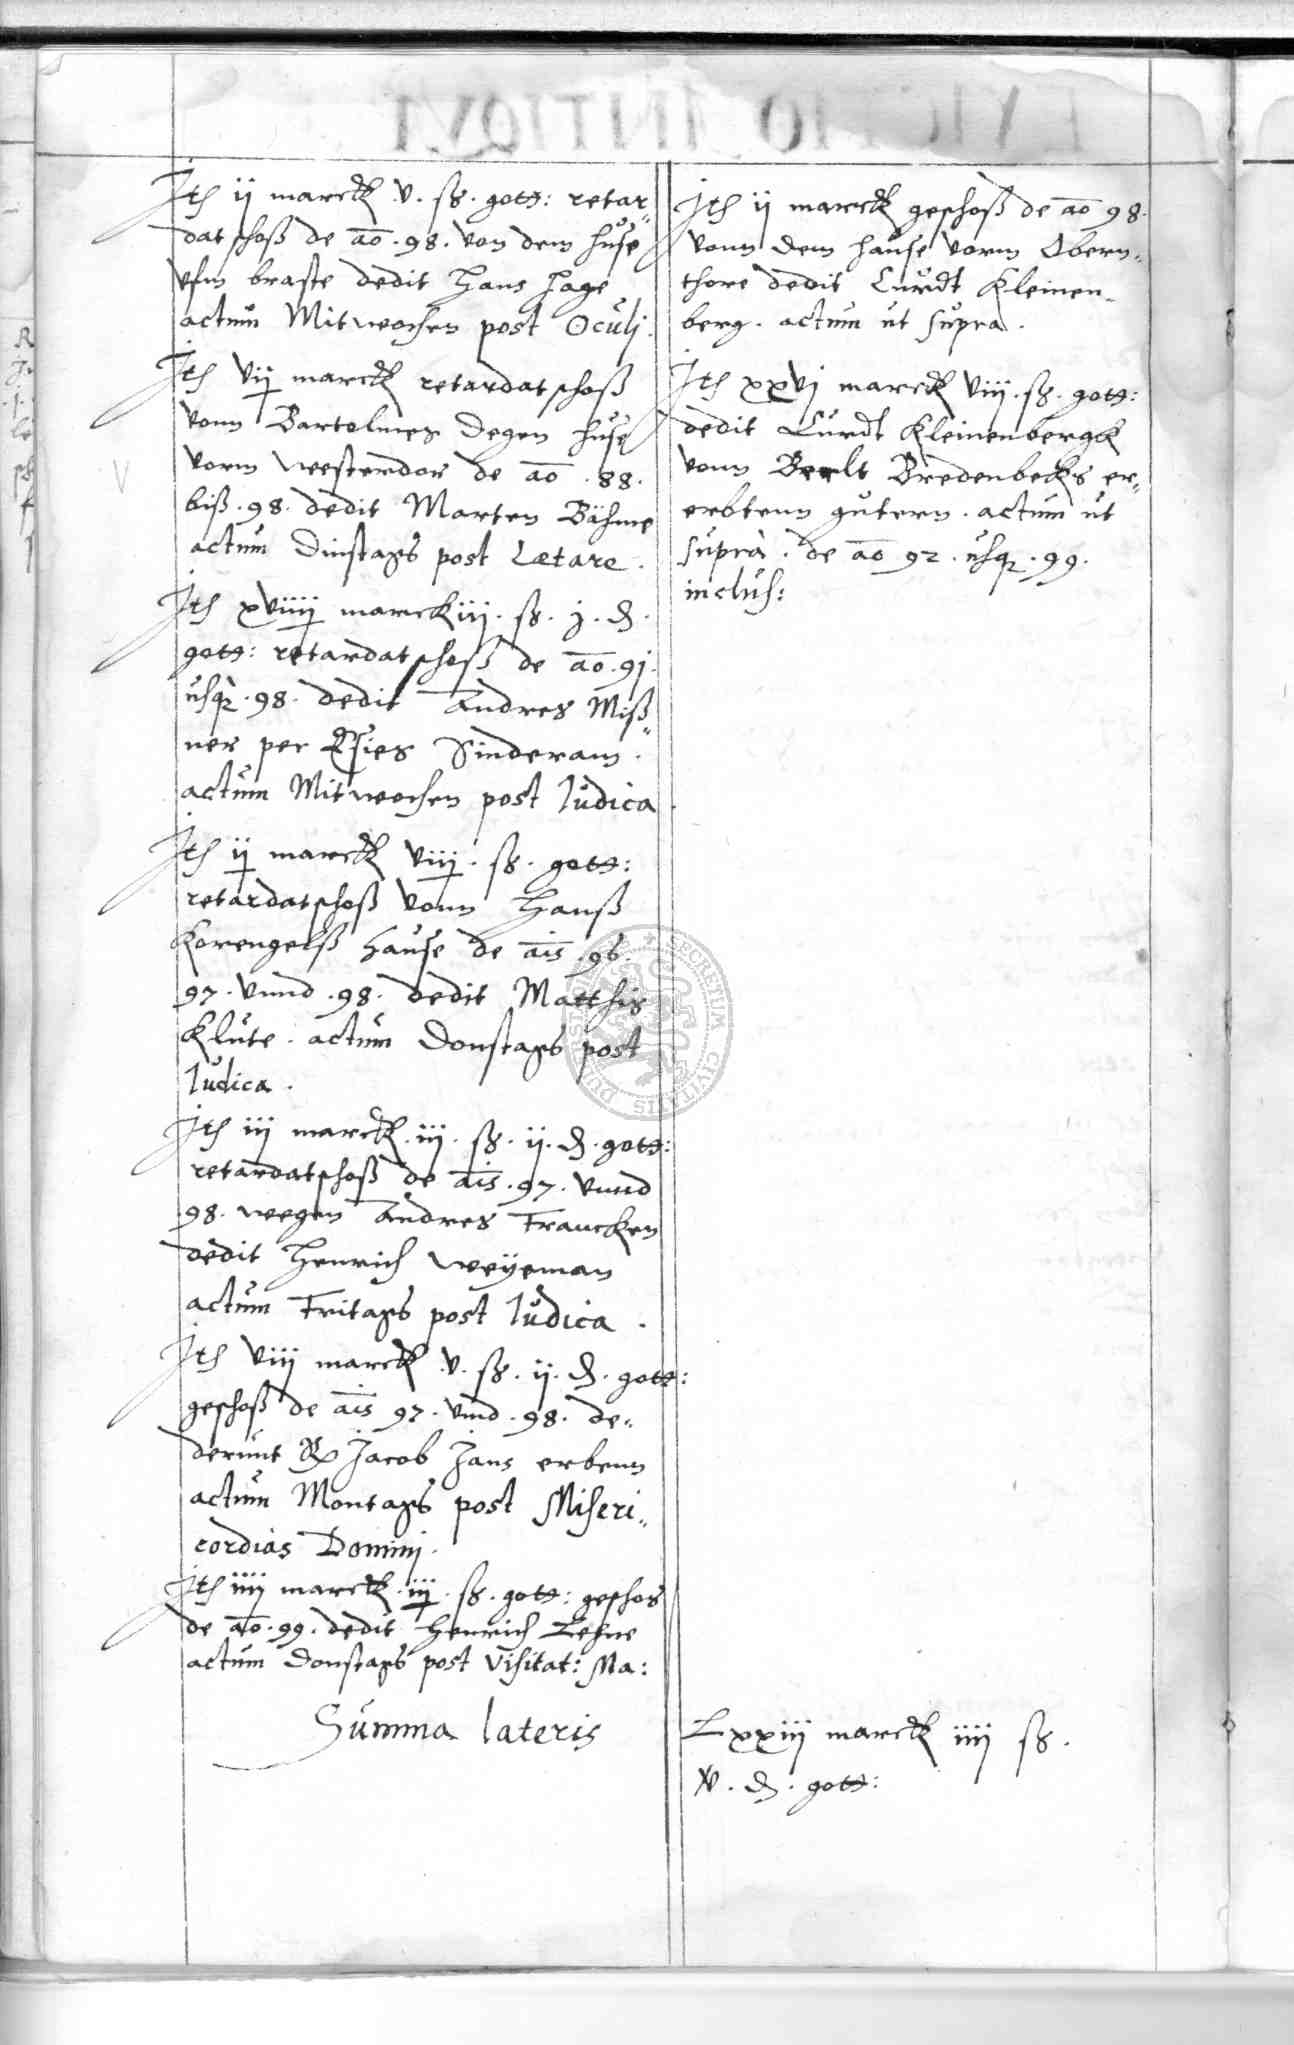 Ith ij marck v. ß. gott: retar„
dat schoß de ao. 98. von dem huse
ufm braste dedit Hans Hage
actum Mitwochen post Oculj.
Ith vij marck retardatschoß
vonn Bartolmes Degen huse
vorm westerdor de ao. 88.
biß. 98. dedit Marten Bähme
actum Dinstags post Lætare.
Ith xviiij marck iij. ß. j. ₰.
gott: retardatschoß de ao. 91.
usq. 98. dedit Andres Miß„
ner per Esies Sinderam.
actum Mitwochen post Iudica.
Ith ij marck viij. ß. gott:
retardatschoß vonn Hanß
Korengelß hause de ais. 96.
97. vnnd. 98. dedit Matthis
Klute. actum Donstags post
Iudica.
Ith iij marck. iij. ß. ij. ₰. gott:
retardatschoß de ais. 97. vnnd
98. wegen Andres Francken
dedit Henrich weyeman
actum Fritags post Iudica.
Ith viij marck v. ß. ij. ₰. gott:
geschoß de ais 97. vnd. 98. de„
derunt Jacob Jans erbenn
actum Montags post Miseri„
cordias Dominj.
Ith iiij marck. iij. ß. gott: geschos
de ao. 99. dedit Henrich Lehne
actum Donstags post Visitat: Ma:
Summa lateris
Ith ij marck geschoß de ao 98.
vonn dem hause vorm Obern„
thore dedit Curdt Kleinen„
berg. actum ut supra.
Ith xxvj marck viij. ß. gott:
dedit Curdt Kleinenbergk
vonn Bredenbecks er„
erbtenn gutern. actum ut
suprà. de ao 92. usq. 99.
inclus:
Lxxiij marck iiij ß.
v. ₰. gott:
SECRETUM CIVITATIS